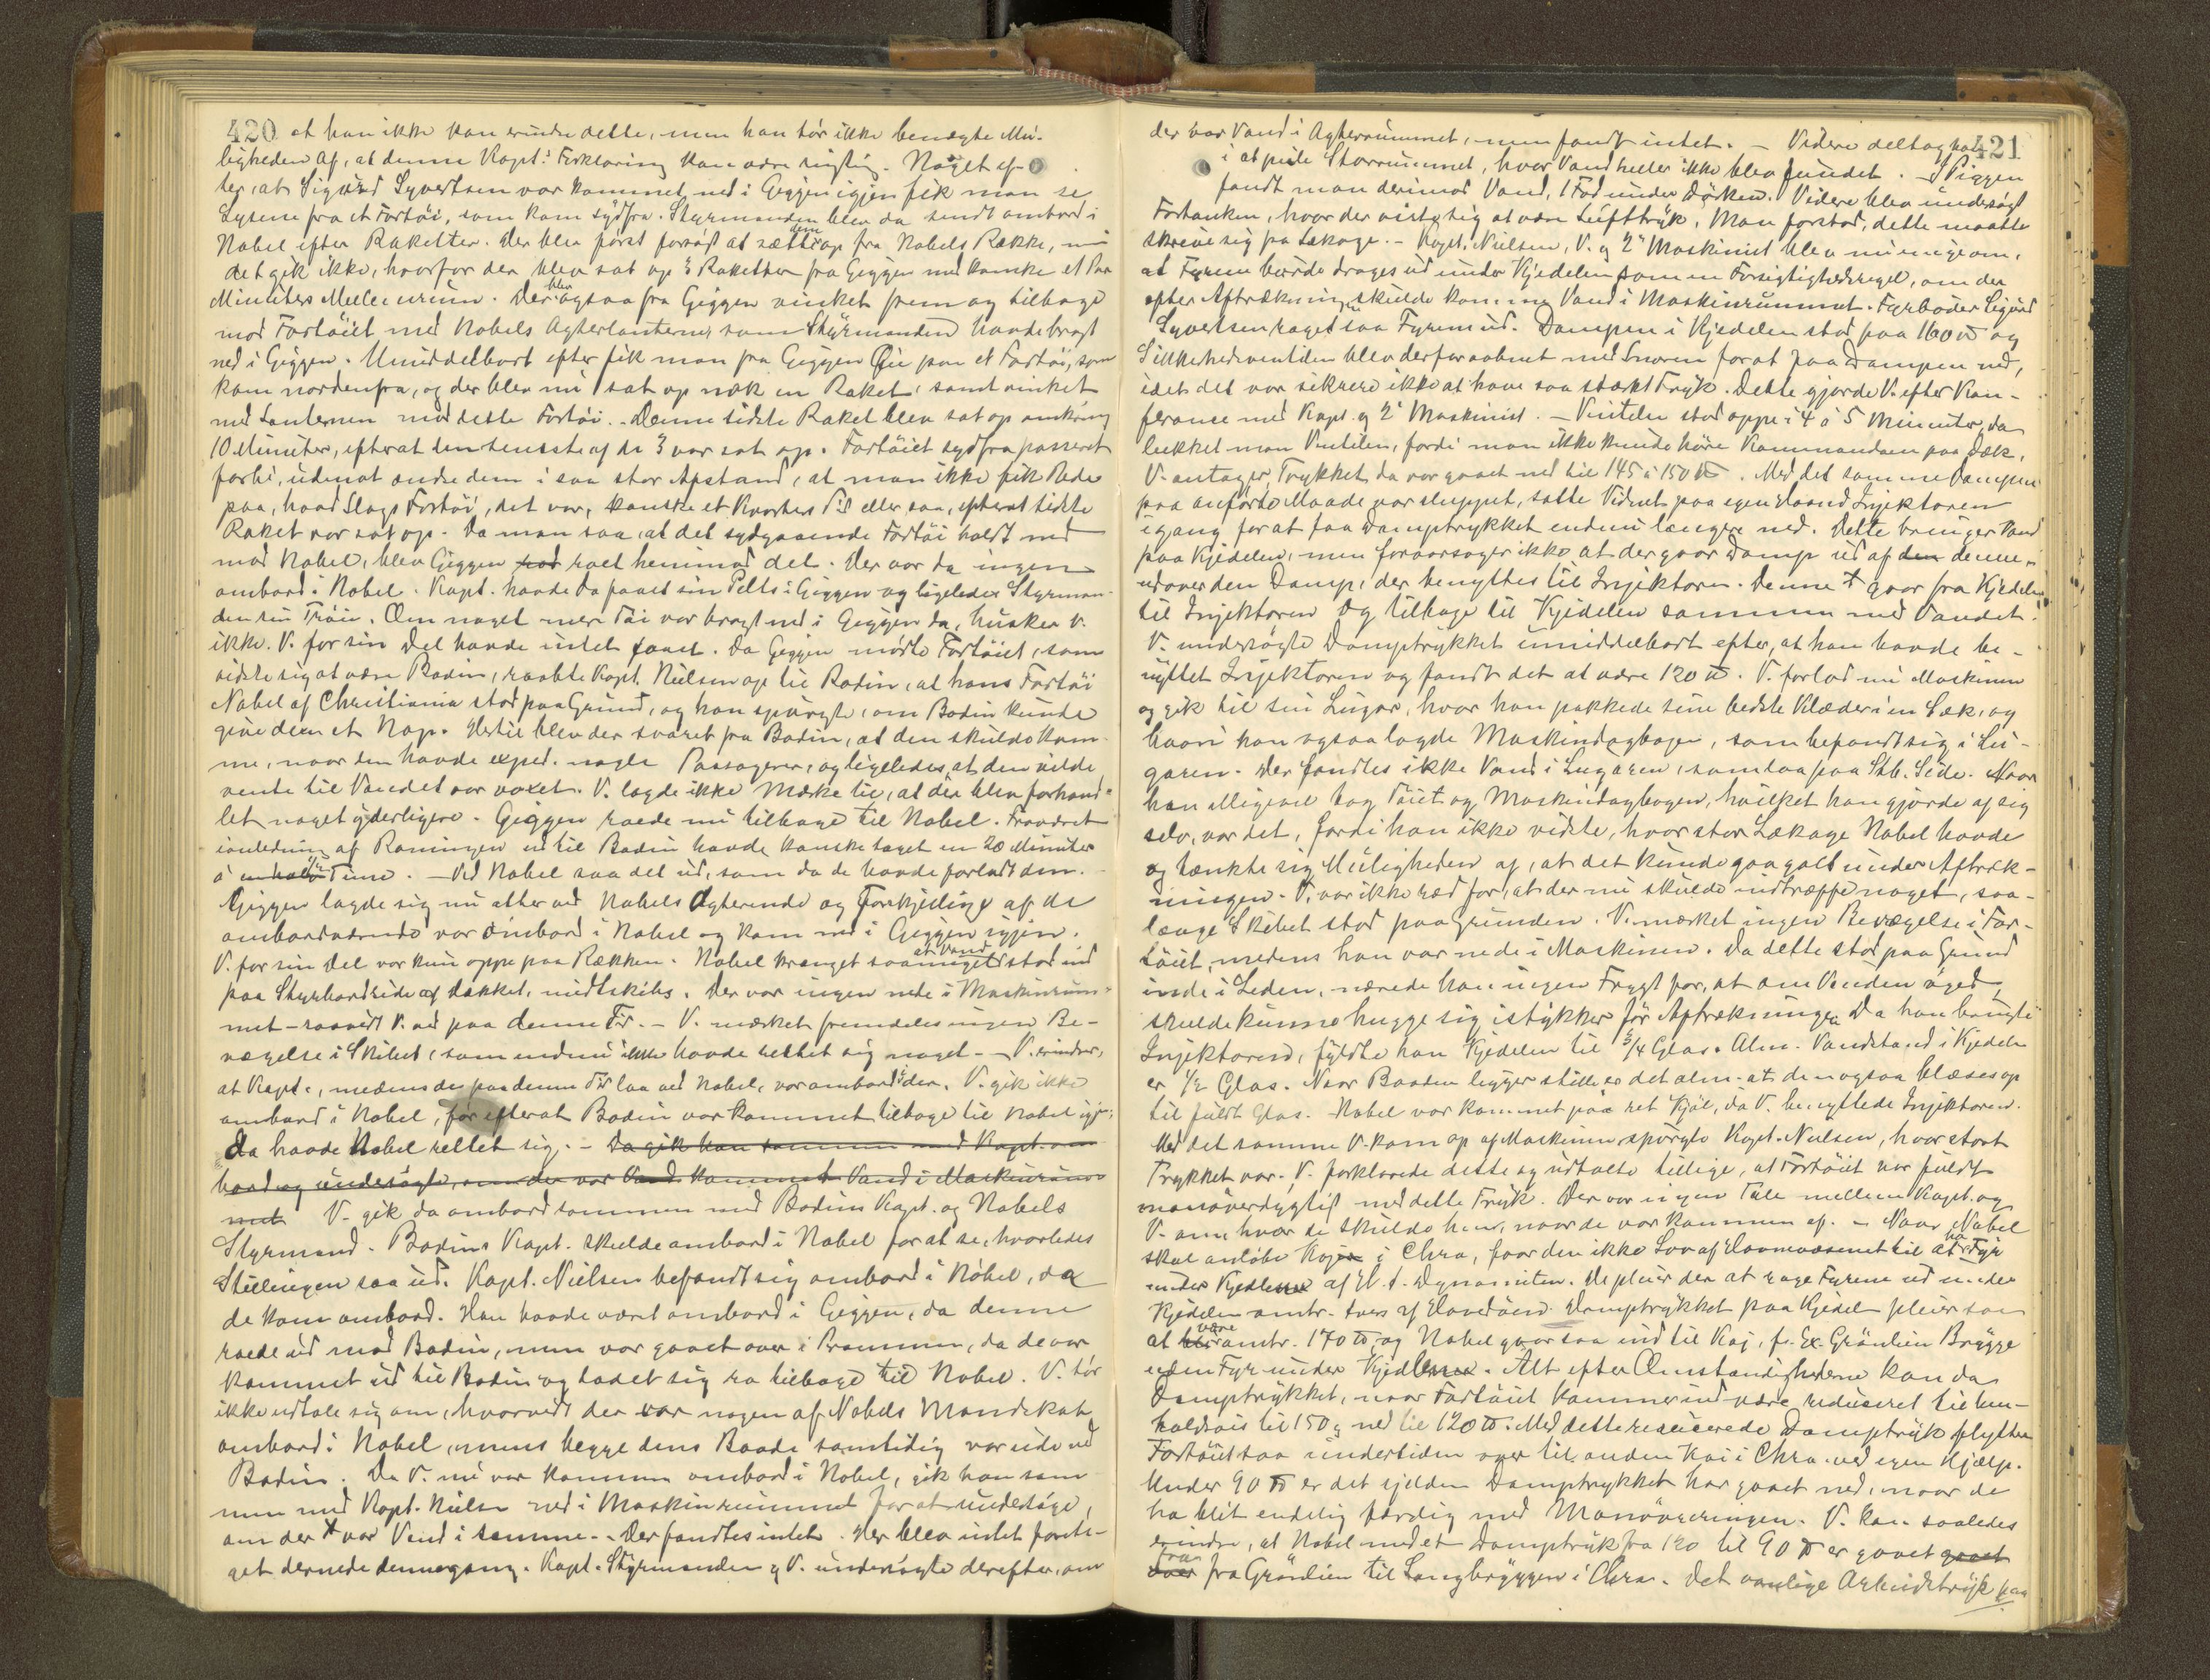 420 at han ikke kan erindre dette, men han tør ikke benægte Mu-
ligheden af, at denne Kapt.s Forklaring kan være rigtig. Noget ef-
ter, at Sigurd Syvertsen var kommet ned i Giggen igjen fik man se
Lysene fra et Fartøi, som kom sydfra. Styrmanden blev da sendt ombord i
Nobel efter Raketter. Der blev først forsøgt at sætte dem op fra Nobels Række, men
det gik ikke, hvorfor der blev sat op 3 Raketter fra Giggen med kanske et Par
Minuters Mellemrum. Der blev ogsaa fra Giggen vinket frem og tilbage
mod Fartøiet med Nobels Agterlanterne, som Styrmanden havde bragt
ned i Giggen. Umiddelbart efter fik man fra Giggen Øie paa et Fartøi, som
kom nordenfra, og der blev nu sat op nok en Raket, samt vinket
med Lanternen mod dette Fartøi. Denne sidste Raket blev sat op omkring
10 Minuter, efterat den seneste af de 3 var sat op. Fartøiet sydfra passeret
forbi, udenat ændse dem i saa stor Afstand, at man ikke fik Rede
paa, hvad Slags Fartøi, det var, kanske et Kvarters Tid eller saa, efterat sidste
Raket var sat op. Da man saa, at det sydgaaende Fartøi holdt ned
mod Nobel, blev Giggen roet henimod det. Der var da ingen
ombord i Nobel. Kapt. havde da faaet sin Pelts i Giggen og ligeledes Styrman-
den sin Trøie. Om noget mere Tøi var bragt ned i Giggen da, husker V.
ikke. V. for sin Del havde intet faaet. Da Giggen mødte Fartøiet, som
viste sig at være Bodin, raabte Kapt. Nielsen op til Bodin, at hans Fartøi
Nobel af Christiania stod paa Grund, og han spurgte, om Bodin kunde
give dem et Nap. Hertil blev der svaret fra Bodin, at den skulde kom-
me, naar den havde exped. nogle Passagerer, og ligeledes, at den vilde
vente til Vandet var voxet. V. lagde ikke Mærke til, at der blev forhand-
let noget yderligere. Giggen roede nu tilbage til Nobel. Fraværet
i anledning af Roningen ud til Bodin havde kanske taget en 20 Minuter
à 1/2 Time. – Ved Nobel saa det ud, som da de havde forladt den.
Giggen lagde sig nu atter ved Nobels Agterende og Forskjellige af de
ombordværende var ombord i Nobel og kom ned i Giggen igjen.
V. for sin Del var kun oppe paa Rækken. Nobel krænget saameget at Vand stod ind
paa Styrbordside af Dækket, midtskibs. Der var ingen nede i Maskinrum-
met – saavidt V. ved paa denne Tid. – V. mærket fremdeles ingen Be-
vægelse i Skibet, som endnu ikke havde rettet sig noget. – V. erindrer,
at Kapt., medens de paa denne Tid laa ved Nobel, var ombord i den. V. gik ikke
ombord i Nobel, før efterat Bodin var kommet tilbage til Nobel igjen;
da havde Nobel rettet sig. – Da gik han sammen med Kapt. om
bord og undersøgte, om der var Vand kommet Vand i Maskinrum-
met V. gik da ombord sammen med Bodins Kapt. og Nobels
Styrmand. Bodins Kapt. skulde ombord i Nobel for at se, hvorledes
Stillingen saa ud. Kapt. Nielsen befandt sig ombord i Nobel, da
de kom ombord. Han havde været ombord i Giggen, da denne
roede ud mod Bodin, men var gaaet over i Prammen, da de var
kommet ud til Bodin og ladet sig ro tilbage til Nobel. V. tør
ikke udtale sig om, hvorvidt der var nogen af Nobels Mandskab
ombord i Nobel, mens begge dens Baade samtidig var ude ved
Bodin. Da V. nu var kommen ombord i Nobel, gik han sam-
men med Kapt. Nielsen ned i Maskinrummet for at undersøge,
om der var Vand i samme. – Der fandtes intet. Her blev intet foreta-
get dernede dennegang. Kapt. Styrmanden og V. undersøgte derefter, om
421
der var Vand i Agterrummet, men fandt intet. – Videre deltog han
i at peile Storrummet, hvor Vand heller ikke blev fundet. – I Piggen
fandt man derimod Vand, 1 Fod under Dørken. Videre blev undersøgt
Fortanken, hvor der viste sig at være Lufttryk. Man forstod, dette maatte
skrive sig fra Lækage. – Kapt. Nielsen, V. og 2' Maskinist blev nu enige om,
at Fyrene burde drages ud under Kjedelen som en Forsigtighedsregel, om der
efter Aftrækningen skulde komme Vand i Maskinrummet. Fyrbøder Sigurd
Syvertsen raget saa Fyrene ud. Dampen i Kjedelen stod paa 160 ℔ og
Sikkerhedsventilen blev derfor aabnet med Snoren for at faa Dampen ned,
idet det var sikrere ikke at have saa stærkt Tryk. Dette gjorde V. efter Kon-
ferance med Kapt. og 2' Maskinist. – Ventilen stod oppe i 4 à 5 Minuter, da
lukket man Ventilen, fordi man ikke kunde høre Kommandoen paa Dæk,
V. antager, Trykket da var gaaet ned til 145 à 150 ℔. Med det samme Dampen
paa anførte Maade var sluppet, satte Vidnet paa egen Haand Injektoren
igang for at faa Damptrykket endnu længere ned. Dette bringer Vand
paa Kjedelen, men foraarsager ikke at der gaar Damp ud af den denne,
udover den Damp, der benyttes til Injektoren. Denne gaar fra Kjedelen
til Injektoren og tilbage til Kjedelen sammen med Vandet.
V. undersøgte Damptrykket umiddelbart efter, at han havde be-
nyttet Injektoren og fandt det at være 120 ℔. V. forlod nu Maskinen
og gik til sin Lugar, hvor han pakkede sine bedste Klæder i en Sæk, og
hvori han ogsaa lagde Maskindagbogen, som befandt sig i Lu-
garen. Der fandtes ikke Vand i Lugaren, som laa paa Stb. Side. Naar
han alligevel tog Tøiet og Maskindagbogen, hvilket han gjorde af sig
selv, var det, fordi han ikke vidste, hvor stor Lækage Nobel havde
og tænkte sig Muligheden af, at det kunde gaa galt under Aftræk-
ningen. V. var ikke ræd for, at der nu skulde indtræffe noget, saa-
længe Skibet stod paa Grunden. V. mærket ingen Bevægelse i Far-
tøiet, medens han var nede i Maskinen. Da dette stod paa Grund
inde i Leden, nærede han ingen Frygt for, at om Vinden øged,
skulde kunne hugge sig istykker før Aftrækningen. Da han brugte
Injektoren, fyldte han Kjedelen til 3/4 Glas. Alm. Vandstand i Kjedelen
er 1/2 Glas. Naar Baaden ligger stille er det alm. at den ogsaa blæses op
til fuldt Glas. Nobel var kommet paa ret Kjøl, da V. benyttede Injektoren.
Med det samme V. kom op af Maskinen, spurgte Kapt. Nielsen, hvor stort
Trykket var. V. forklarede dette og udtalte tillige, at Fartøiet var fuldt
manøverdygtig med dette Tryk. Der var ingen Tale mellem Kapt. og
V. om, hvor de skulde hen, naar de var kommen af. – Naar Nobel
skal anløbe Kaje i Chra, faar den ikke Lov af Havnvæsenet til at ha Fyr
under Kjedlene af H. t. Dynamiten. De pleier der at rage Fyrene ud under
Kjedelen omtr. tvers af Hovedøen. Damptrykket paa Kjedel pleier saa
at være omtr. 170 ℔, og Nobel gaar saa ind til Kaj, f. Ex. Grønlien Brygge
uden Fyr under Kjedlene. Alt efter Omstændighederne kan da
Damptrykket, naar Fartøiet kommer ind være reduseret til hen-
holdsvis til 150, ned til 120 ℔. Med dette reducerede Damptryk flytter
Fartøiet saa undertiden over til anden Kai i Chra. ved egen Hjælp.
Under 90 ℔ er det sjelden Damptrykket har gaaet ned, naar de
ha blit endelig færdig med Manøvreringen. V. kan saaledes
erindre, at Nobel med et Damptryk fra 120 til 90 ℔ er gaaet gaaet
fra Grønlien til Langbryggen i Chra. Det vanlige Arbeidstryk paa